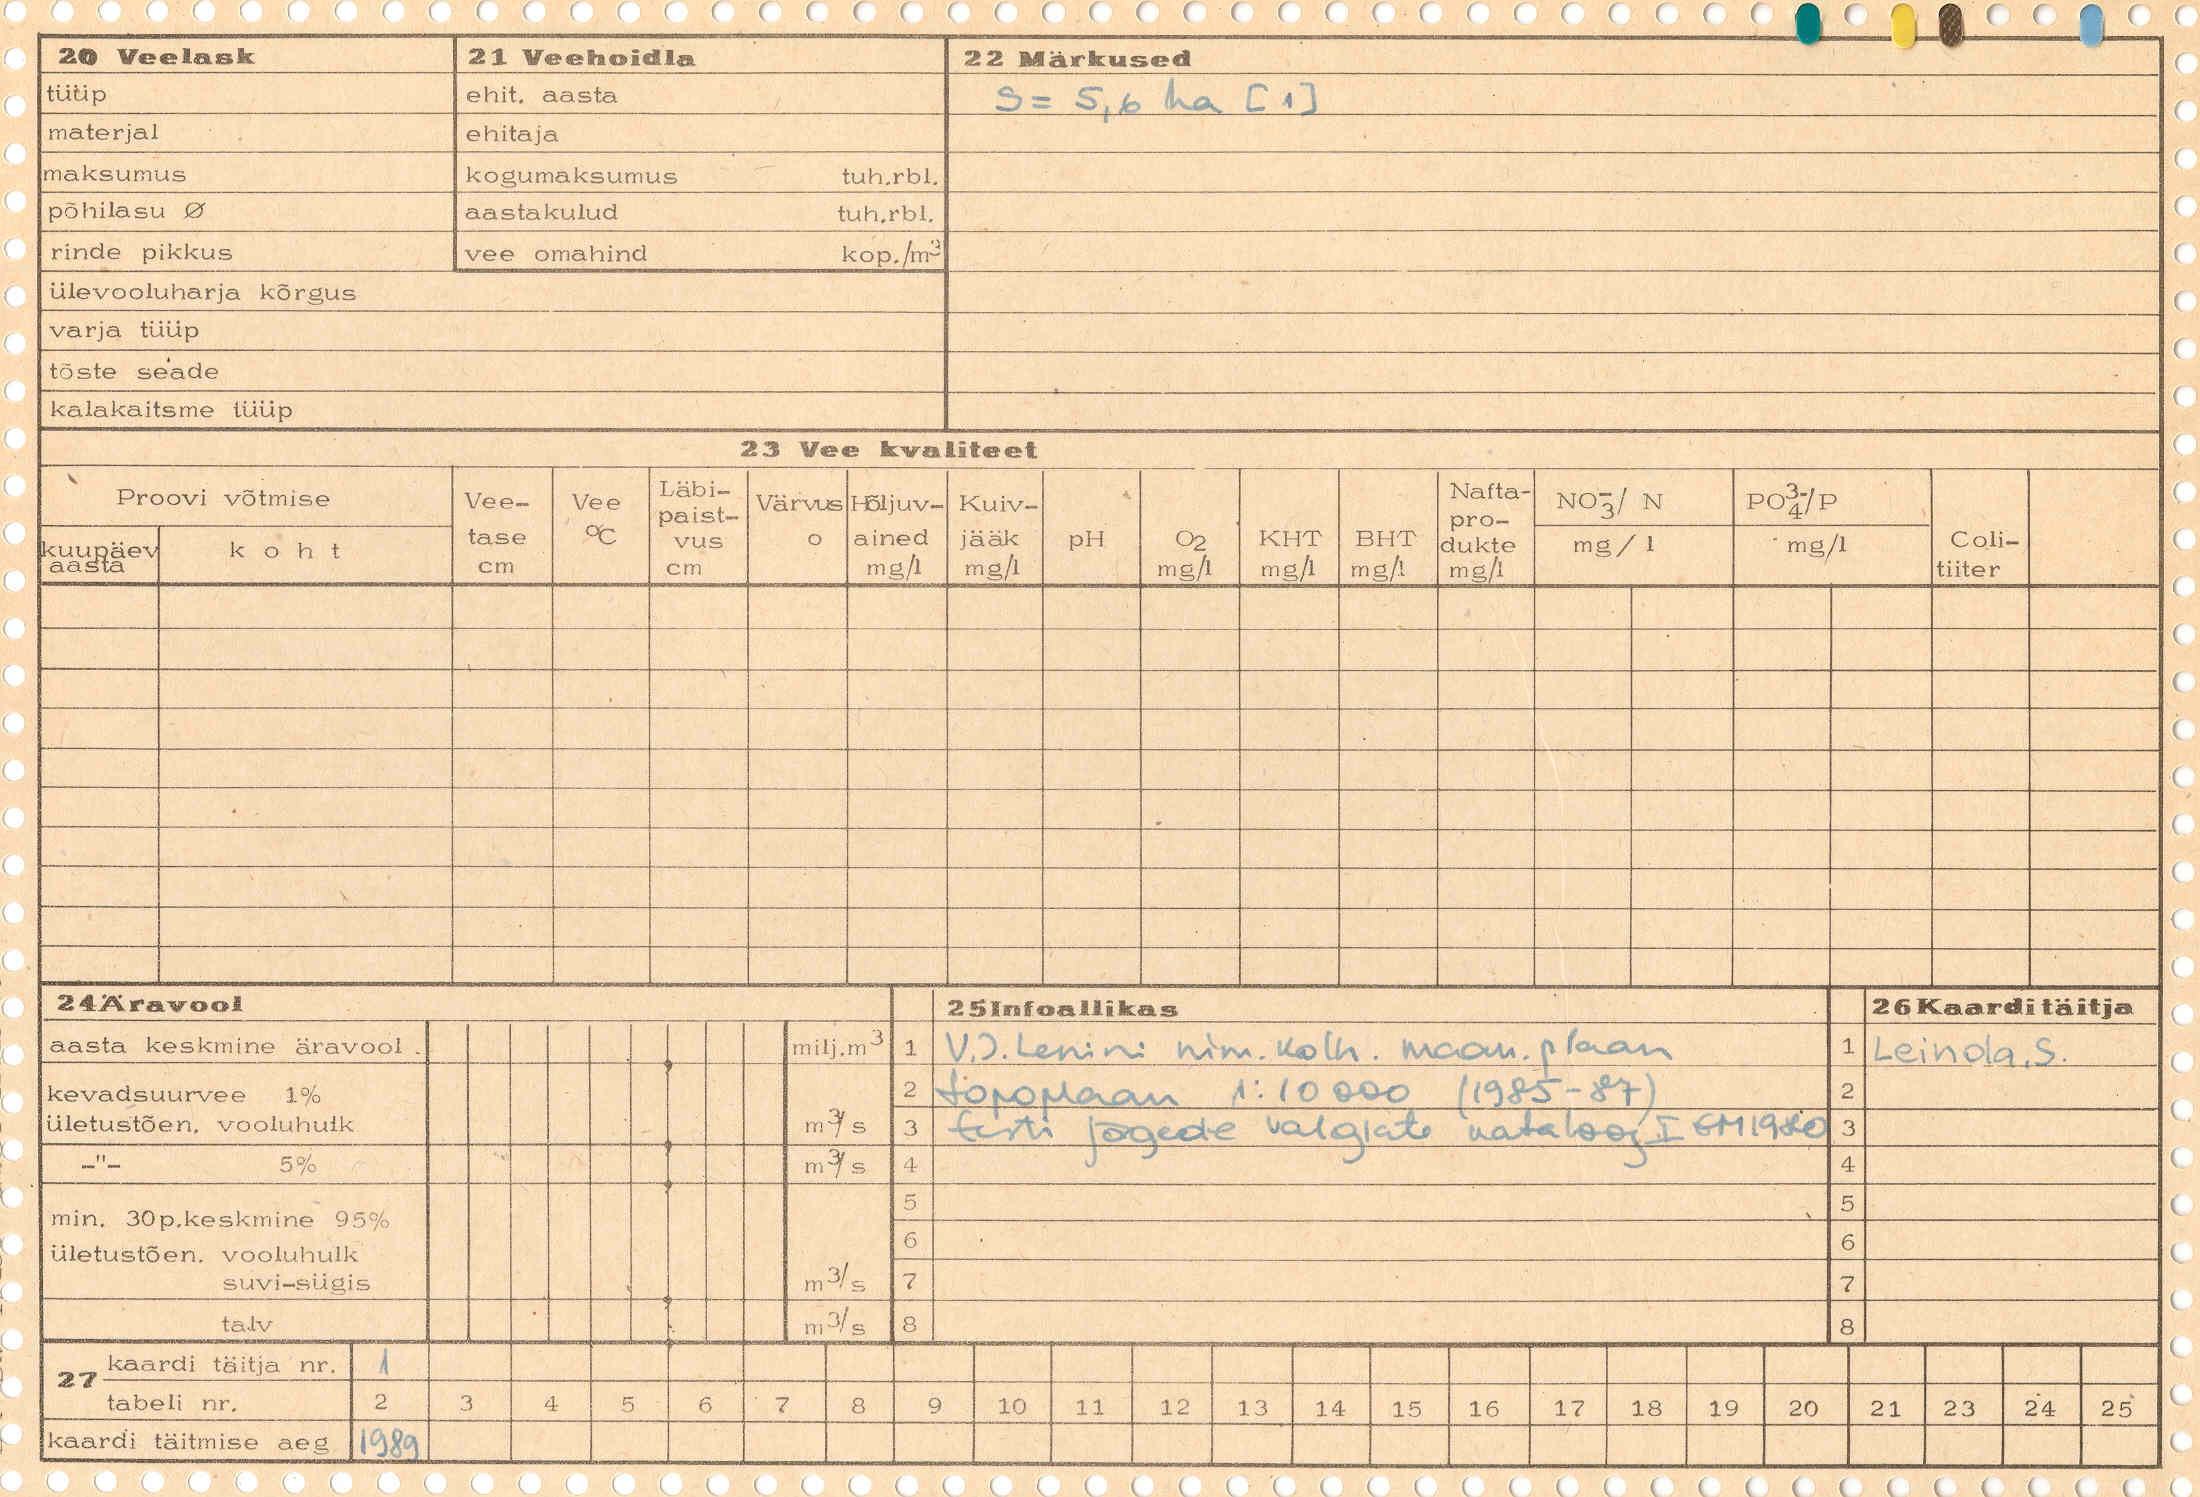 20 Veelask
tüüp
materjal
maksumus
põhilasu Ø
rinde pikkus
ülevooluharja kõrgus
varja tüüp
tõste seade
kalakaitsme tüüp
21 Veehoidla
ehit. aasta
ehitaja
kogumaksumus tuh.rbl.
aastakulud tuh.rbl.
vee omahind kop./m³
22 Märkused
S = 5,6 ha [1]
23 Vee kvaliteet
Proovi võtmise
kuupäev
aasta
koht
Vee-
tase
cm
Vee
°C
Läbi-
paist-
vus
cm
Värvus
o
Hõljuv-
ained
mg/l
Kuiv-
jääk
mg/l
pH
O2
mg/l
KHT
mg/l
BHT
mg/l
Nafta-
pro-
dukte
mg/l
NO₃⁻/ N
mg/l
PO₄³⁻/P
mg/l
Coli-
tiiter
24 Äravool
aasta keskmine äravool . milj.m³
kevadsuurvee 1%
ületustõen. vooluhulk m³/s
-"- 5% m³/s
min. 30p.keskmine 95%
ületustõen. vooluhulk
suvi-sügis m³/s
talv m³/s
25 Infoallikas
1 V.J. Lenini nim. kolh. maak. plaan
2 topoplaan 1:10 000 (1985-87)
3 Eesti jõgede valglate kataloog I EM 1980
4
5
6
7
8
26 Kaardi täitja
1 Leinola, S.
2
3
4
5
6
7
8
27
kaardi täitja nr. 1
tabeli nr. 2 3 4 5 6 7 8 9 10 11 12 13 14 15 16 17 18 19 20 21 23 24 25
kaardi täitmise aeg 1989